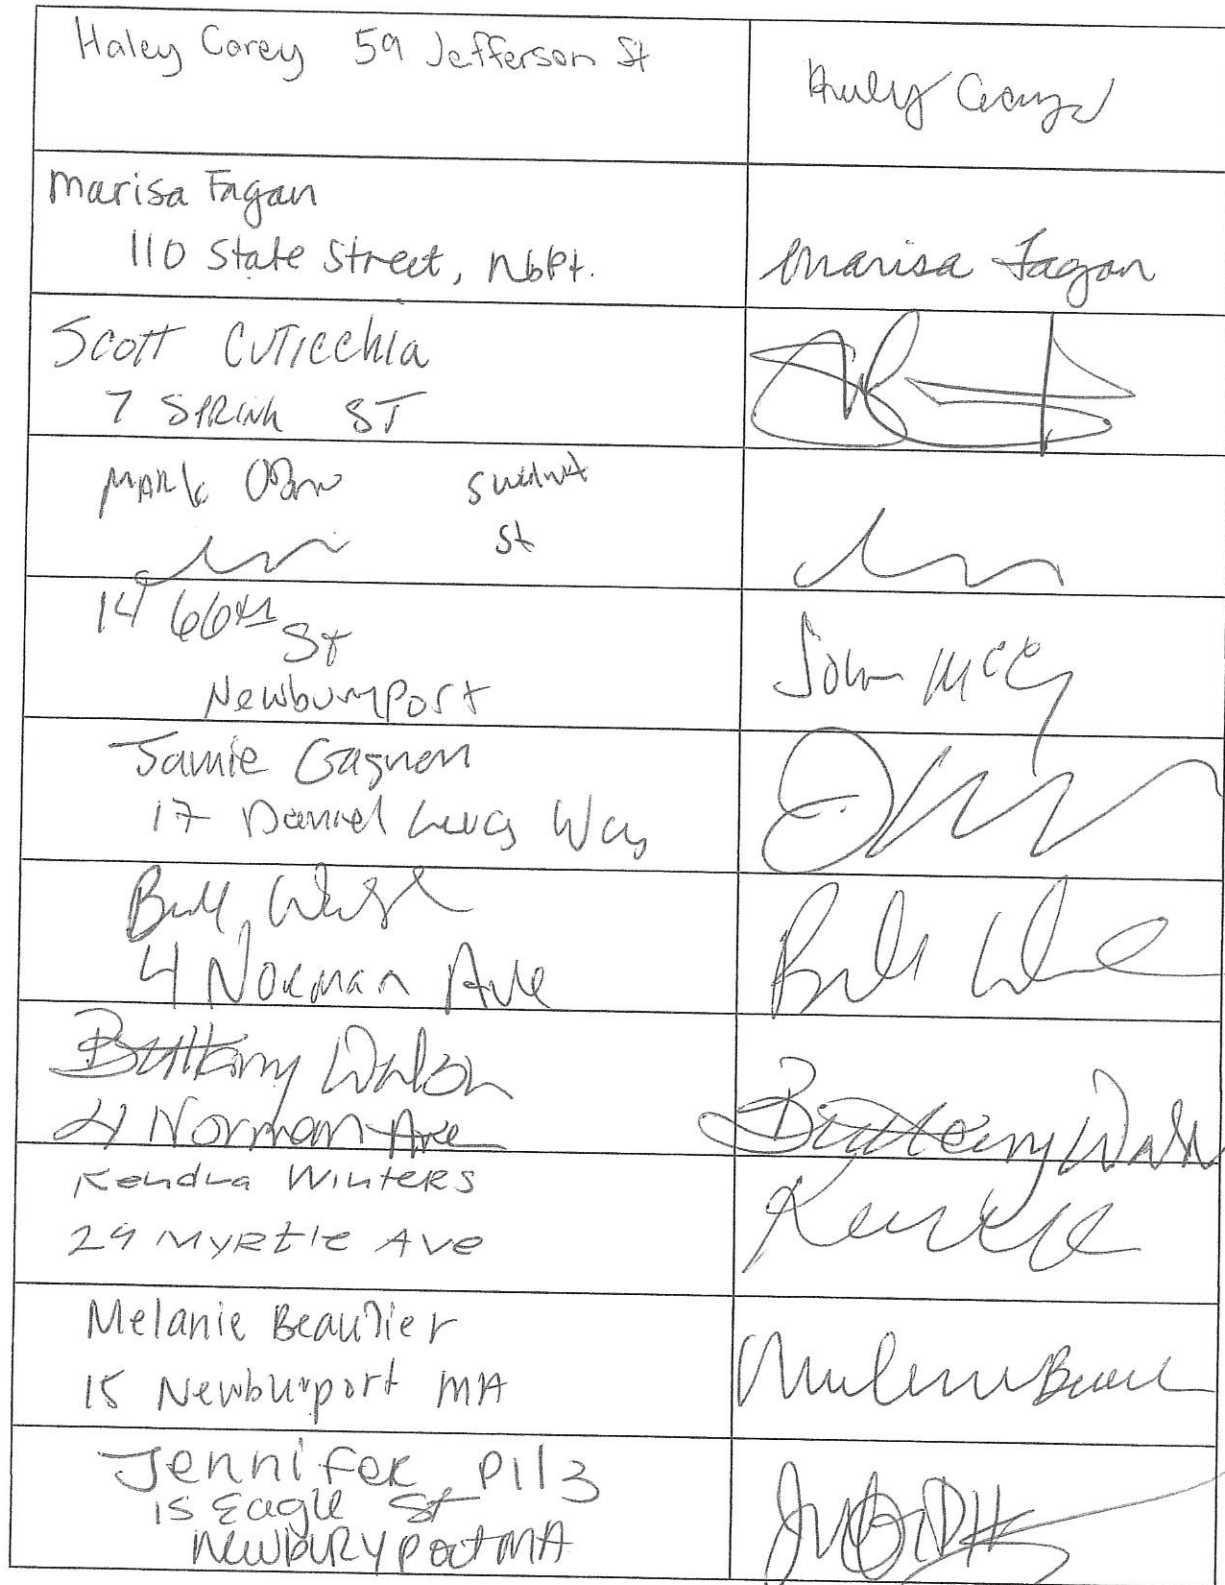 Haley Carey 59 Jefferson St
Marisa Fagan
110 State Street, Nbpt.
Marisa Fagan
Scott Cuticchia
7 Spring ST
Mark
St
14 66th St
Newburyport
John McC
Jamie Gagnon
17 Daniel Lucy Way
Bill Walsh
4 Norman Ave
Brittany Walsh
4 Norman Ave
Brittany Walsh
Kendra Winters
29 Myrtle Ave
Melanie Beaulier
15 Newburyport MA
Jennifer Pilz
15 Eagle St
Newburyport MA